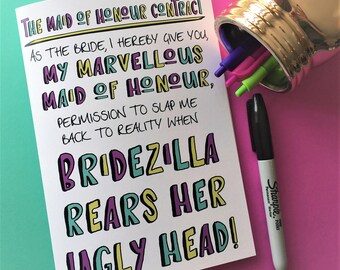 THE MAID OF HONOUR CONTRACT
AS THE BRIDE, I HEREBY GIVE YOU,
MY MARVELLOUS
MAID OF HONOUR,
PERMISSION TO SLAP ME
BACK TO REALITY WHEN
BRIDEZILLA
REARS HER
UGLY HEAD!
Sharpie